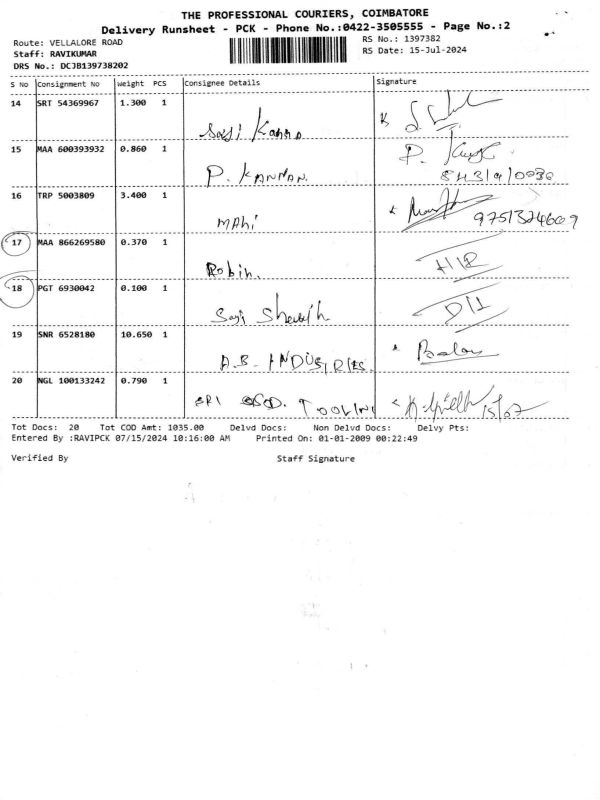 THE PROFESSIONAL COURIERS, COIMBATORE
Delivery Runsheet - PCK - Phone No.:0422-3505555 - Page No.:2
Route: VELLALORE ROAD
RS No.: 1397382
Staff: RAVIKUMAR
RS Date: 15-Jul-2024
DRS No.: DCJB139738202
S No Consignment No Weight PCS Consignee Details Signature
14 SRT 54369967 1.300 1
15 MAA 600393932 0.860 1 P. KANNAN. P.
16 TRP 5003809 3.400 1 MAhi 9751324609
17 MAA 866269580 0.370 1 Robin. H/R
18 PGT 6930042 0.100 1 D/1
19 SNR 6528180 10.650 1 A.B. INDUSTRIES. Balan
20 NGL 100133242 0.790 1 SRI TOOLING 15/07
Tot Docs: 20 Tot COD Amt: 1035.00 Delvd Docs: Non Delvd Docs: Delvy Pts:
Entered By :RAVIPCK 07/15/2024 10:16:00 AM Printed On: 01-01-2009 00:22:49
Verified By Staff Signature